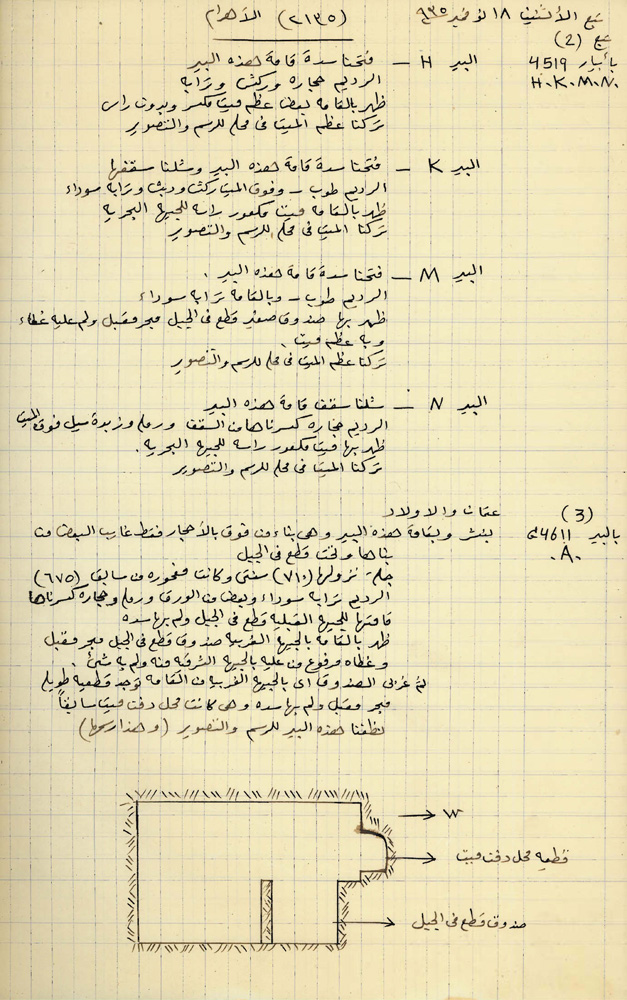 تبع الأثنين ١٨ نوفمبر ٩٣٥
(٢١٣٥) الأهرام
تبع (2)
بأبيار 4519
H.K.M.N.
البير H — فتحنا سدة قامة هذه البير
الرديم حجاره وركش وترابه
ظهر بالقامه بعض عظم ميت مكسر وبدون راس
تركنا عظم الميت فى محله للرسم والتصوير
البير K — فتحنا سدة قامة هذه البير وشلنا سقفها
الرديم طوب – وفوق الميت ركش ودبش وترابه سوداء
ظهر بالقامه ميت مكعور راسه للجهه البحريه
تركنا الميت فى محله للرسم والتصوير
البير M — فتحنا سدة قامة هذه البير .
الرديم طوب – وبالقامة ترابه سوداء
ظهر بها صندوق صغير قطع فى الجبل مبحر مقبل ولم عليه غطاء
وبه عظم ميت .
تركنا عظم الميت فى محله للرسم والتصوير
البير N — شلنا سقف قامة هذه البير
الرديم حجاره كسرناها من السقف ورمله وزبدة سيل فوق الميت
ظهر بها ميت مكعور راسه للجهه البحريه .
تركنا الميت فى محله للرسم والتصوير
(3) عمان والاولاد
بالبير 4611
.A.
بنشر وبقامة هذه البير وهى بناء من فوق بالأحجار فقط غارب البعض من
بناها وتحت قطع فى الجبل
جملة نزولها (٧١٠) سنتى وكانت مفحوره من سابق (٦٧٥)
الرديم ترابه سوداء وبعض من الورق ورمله وحجاره كسرناها
قامتها للجهه القبليه قطع فى الجبل ولم بها سده
ظهر بالقامه بالجهه الغربيه صندوق قطع فى الجبل مبحر مقبل
وغطاه مرفوع من عليه بالجهه الشرقيه منه ولم به شئ .
ثم غربى الصندوق اى بالجهه الغربيه من القامه توجد قطعيه طويله
مبحر مقبل ولم بها سده وهى كانت محل دفن ميت سابقاً
نظفنا هذه البير للرسم والتصوير (وهذا رسمها)
W
قطعيه محل دفن ميت
صندوق قطع فى الجبل